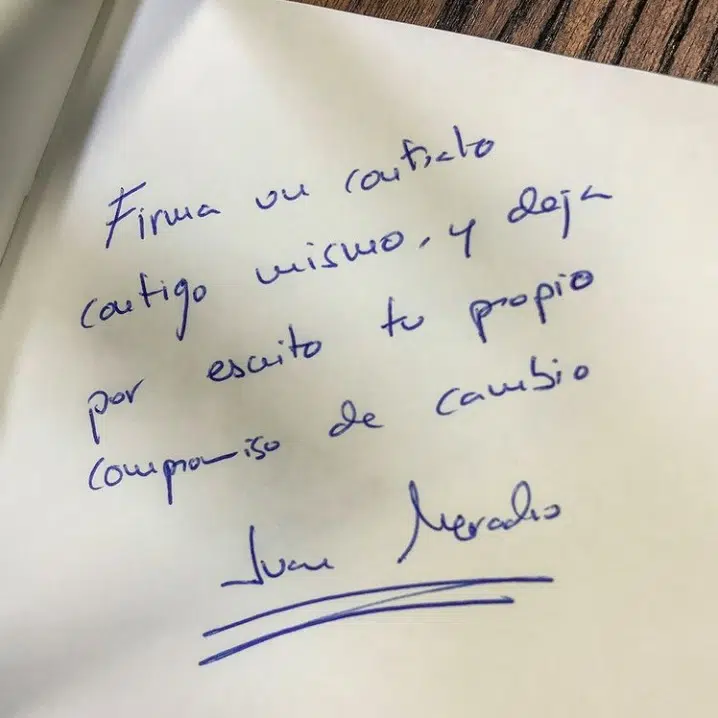 Firma un contrato
contigo mismo, y deja
por escrito tu propio
compromiso de cambio
Juan Merodio